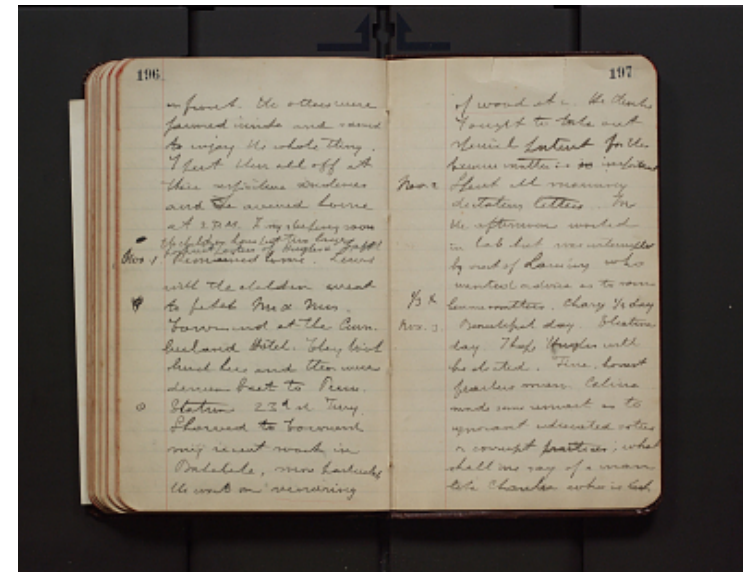 196
in front. The others were
and seemed
to enjoy the whole thing.
I put them all off at
their respective residences
and arrived home
at 2 P.M. In my sleeping room
the children have put two large
of Hughes
Nov. 1. Remained home. Lewis
with the children went
to fetch Mr & Mrs.
Townsend at the Cum-
berland Hotel. They took
lunch here and then were
driven back to Penn.
Station 23rd St Ferry.
Showed to Townsend
my recent work in
Bakelite, more particularly
the work on rendering
197
of wood etc. He thinks
I ought to take out
special patent for this
because matter is so important
Nov. 2 Spent all morning
dictating letters. In
the afternoon worked
in lab but was interrupted
by visit of who
wanted advice as to some
1/2 X matters. Charge 1/2 day
Nov. 3. Beautiful day. Election
day. I hope Hughes will
be elected. Fine, honest
fearless man. Celine
made some remark as to
ignorant uneducated voters
or corrupt practices; what
shall we say of a man
like Chandler who is both